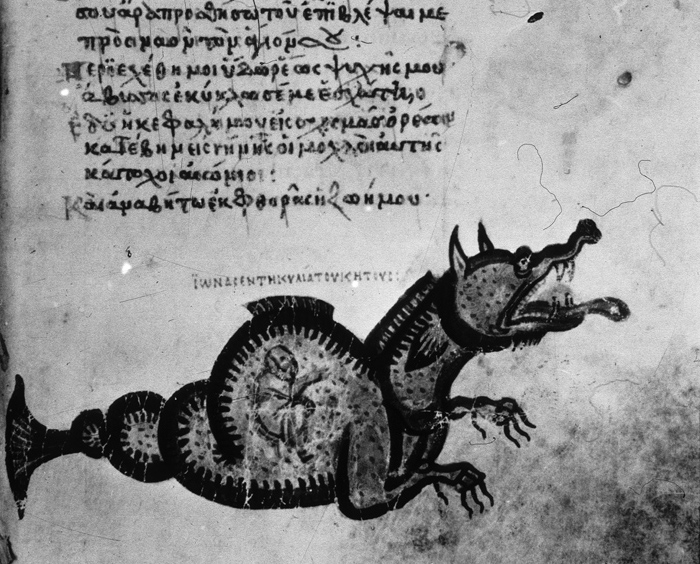 σου ἆρα προσθήσω τοῦ ἐπιβλέψαι με
πρὸς ναὸν τὸν ἅγιόν σου:
Περιεχέθη μοι ὕδωρ ἕως ψυχῆς μου
ἄβυσσος ἐκύκλωσέ με ἐσχάτη
Ἔδυ ἡ κεφαλή μου εἰς σχισμὰς ὀρέων
κατέβην εἰς γῆν ἧς οἱ μοχλοὶ αὐτῆς
κάτοχοι αἰώνιοι:
Καὶ ἀναβήτω ἐκ φθορᾶς ἡ ζωή μου·
ΙΩΝΑC ΕΝ ΤΗ ΚΥΛΙΑ ΤΟΥ ΚΗΤΟΥC: